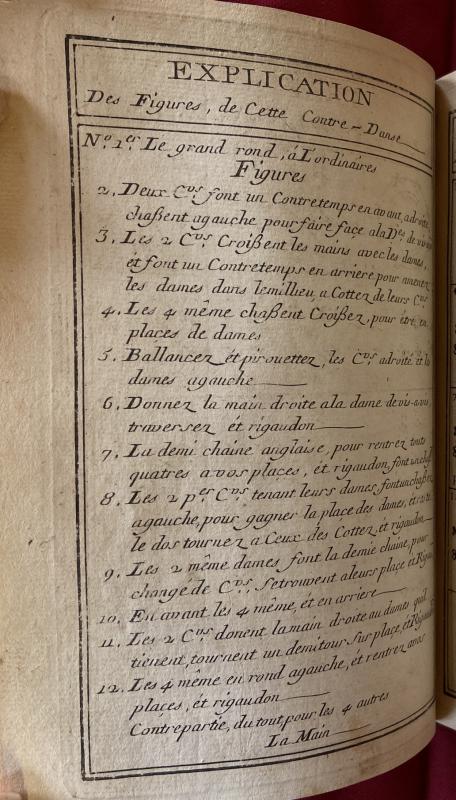 EXPLICATION
Des Figures, de Cette Contre-Danse
N.º 1.er Le grand rond, á L'ordinaires
Figures
2. Deux C.vs font un Contretemps en avant, adroite,
chaßent agauche pour faire face ala D.es de vis
3. Les 2 C.vs Croißent les mains avec les dames,
ét font un Contretemps en arriere pour amener
les dames dans lemillieu, a Cottez de leurs C.vs
4. Les 4 même chaßent Croißez, pour étre, en
places de dames
5. Ballancez, ét pirouettez, les C.vs adroite et les
dames agauche
6. Donnez la main droite ala dame devis-avis,
traversez ét rigaudon
7. La demi chaine anglaise, pour rentrez touts
quatres avos places, ét rigaudon, font un chaßez
8. Les 2 p.er C.vs tenant leurs dames, font un chaßez
agauche, pour gagner la place des dames, ét
le dos tournez a Ceux des Cottez, et rigaudon
9. Les 2 même dames font la demie chaine, pour
changé de C.vs, Setrouvent aleurs place et Rigau
10. En avant les 4 même, ét en arriere
11. Les 2 C.vs donent la main droite au dames quil
tienent, tournent un demitour Sur place, ét Rigaudon
12. Les 4 même en rond agauche, ét rentrez avos
places, ét rigaudon
Contrepartie, du tout, pour les 4 autres
La Main